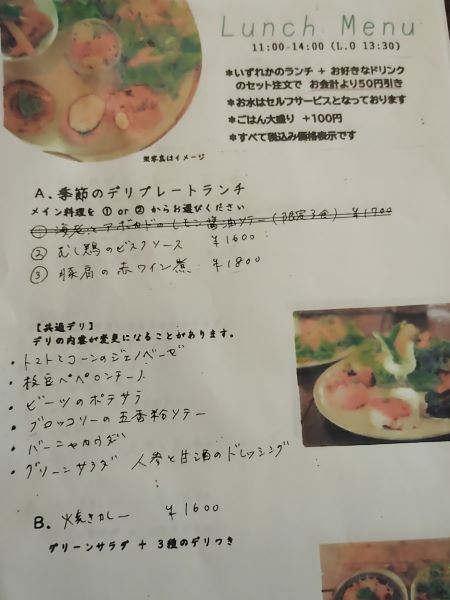 Lunch Menu
11:00-14:00 (L.O 13:30)
＊いずれかのランチ + お好きなドリンク
のセット注文で お会計より50円引き
＊お水はセルフサービスとなっております
＊ごはん大盛り +100円
＊すべて税込み価格表示です
※写真はイメージ
A. 季節のデリプレートランチ
メイン料理を ① or ② からお選びください
① 海老とアボカドのレモン醤油ソテー (限定3食) ¥1700
② むし鶏のビスクソース ¥1600
③ 豚肩の赤ワイン煮 ¥1800
【共通デリ】
デリの内容が変更になることがあります。
・トマトとコーンのジェノベーゼ
・枝豆ペペロンチーノ
・ビーツのポテサラ
・ブロッコリーの五香粉ソテー
・バーニャカウダ
・グリーンサラダ 人参と甘酒のドレッシング
B. 焼きカレー ¥1600
グリーンサラダ + 3種のデリつき